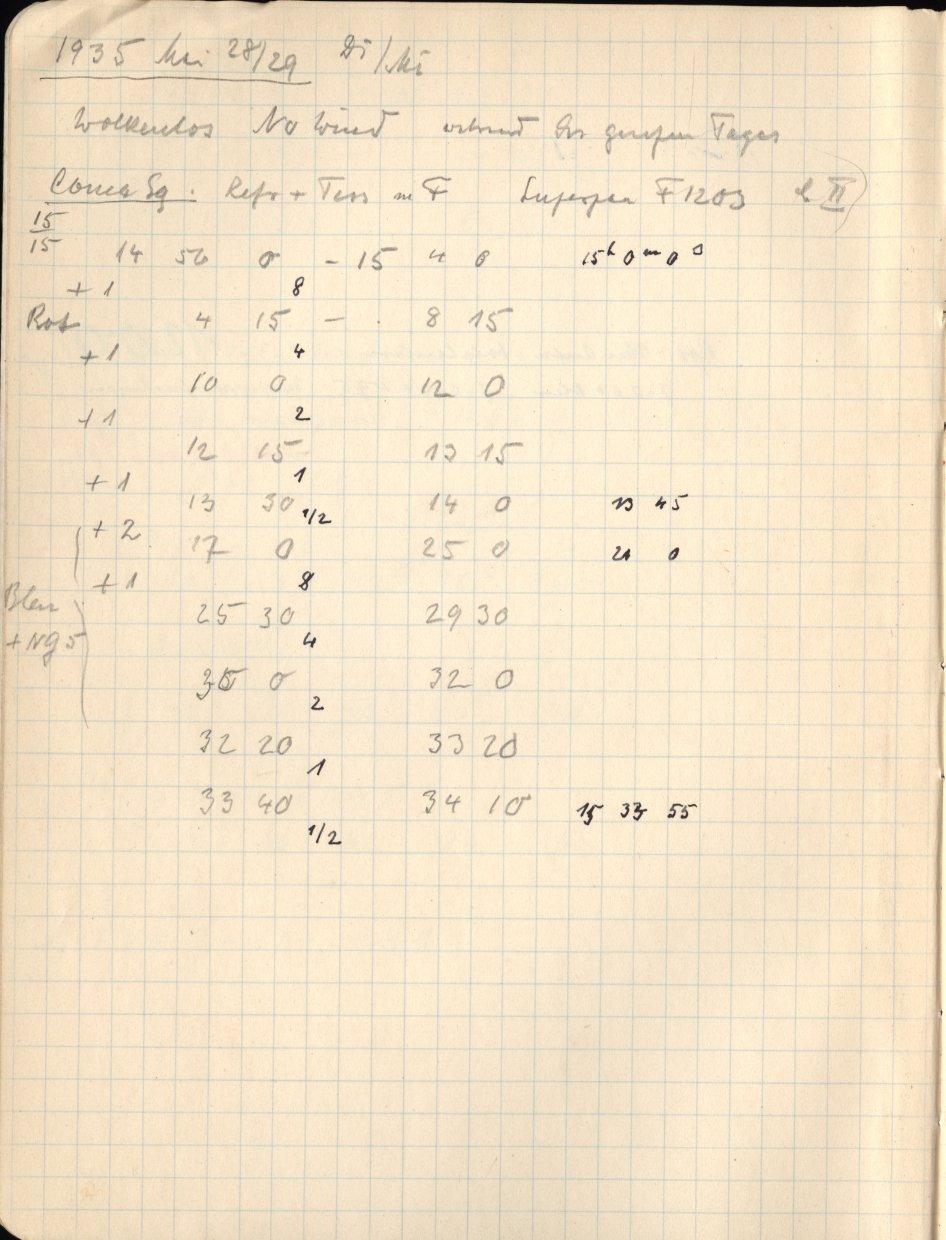 1935 Mai 28/29 Di/Mi
Wolkenlos No Wind während des ganzen Tages
Coma Sq. Refr + Tess m F Superpan F 1203 II
15/15
14 56 0 - 15 4 0 15h 0m 0s
+1 8
Rot 4 15 - 8 15
+1 4
10 0 12 0
+1 2
12 15 13 15
+1 1
13 30 1/2 14 0 13 45
+2
17 0 25 0 21 0
+1 8
Blau 25 30 29 30
+ NG 5 4
30 0 32 0
2
32 20 33 20
1
33 40 34 10 15 33 55
1/2